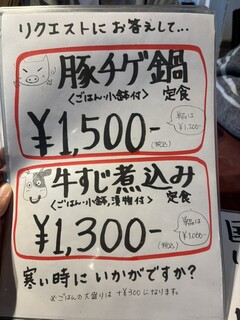 リクエストにお答えして...
豚チゲ鍋
〈ごはん・小鉢付〉定食
¥1,500-
(税込)
単品は
¥1,200-
牛すじ煮込み
〈ごはん・小鉢,漬物付〉定食
¥1,300-
(税込)
単品は
¥1,000-
寒い時にいかがですか?
※ごはんの大盛りは +¥300 になります。